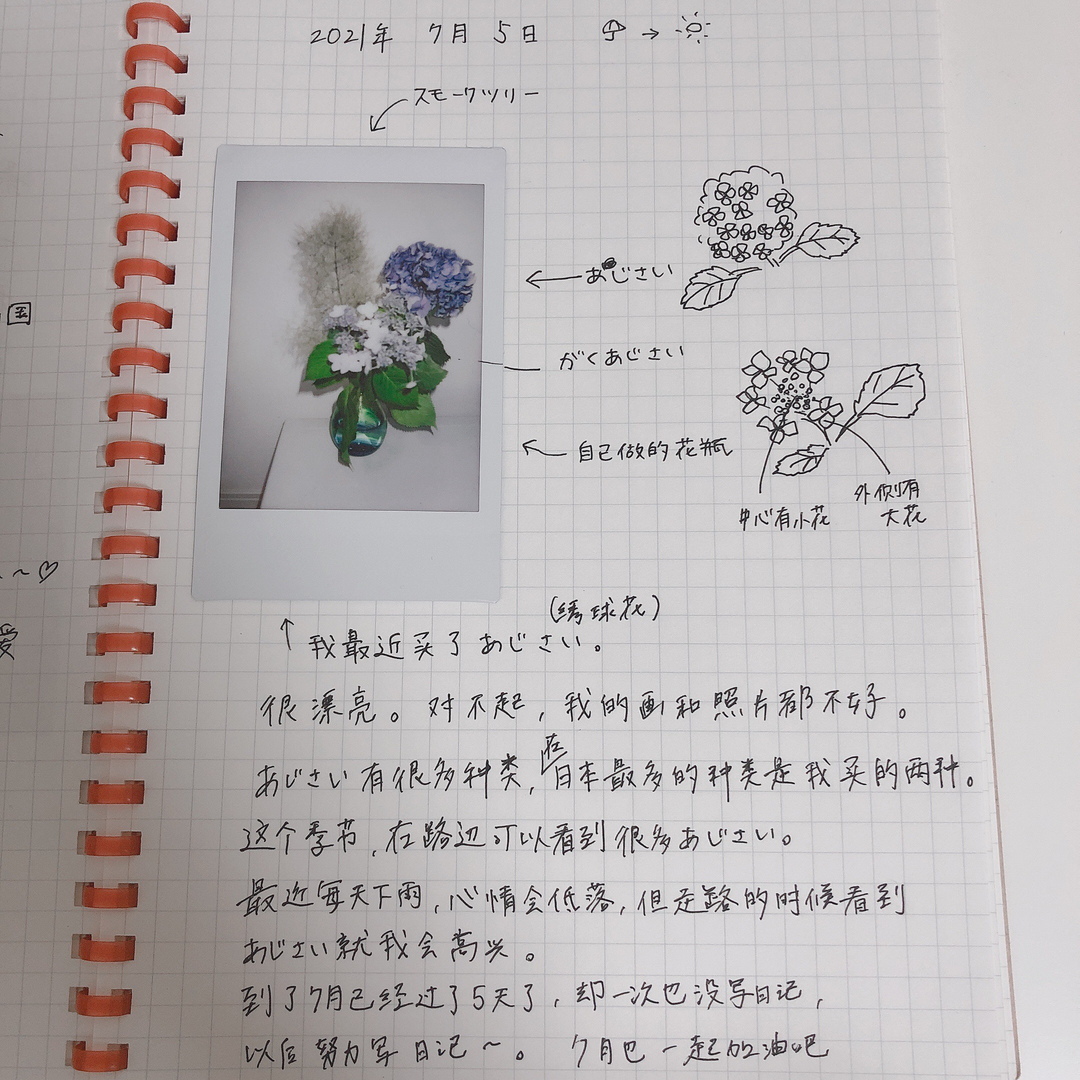 2021年 7月 5日 →
スモークツリー
あじさい
がくあじさい
自己做的花瓶
中心有小花
外侧有
大花
(绣球花)
↑ 我最近买了あじさい。
很漂亮。对不起，我的画和照片都不好。
あじさい有很多种类，在日本最多的种类是我买的两种。
这个季节，在路边可以看到很多あじさい。
最近每天下雨，心情会低落，但走路的时候看到
あじさい就我会高兴。
到了7月已经过了5天了，却一次也没写日记，
以后努力写日记～。 7月也一起加油吧
国
～♡
爱